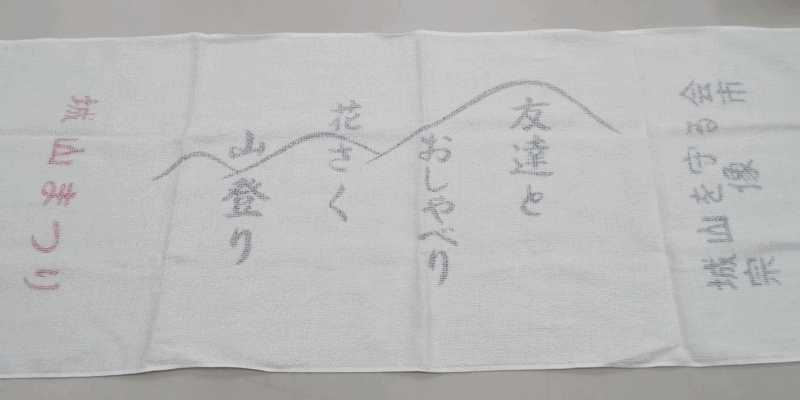 城山まつり
友達と
おしゃべり
花さく
山登り
城山を守る会
宗像市